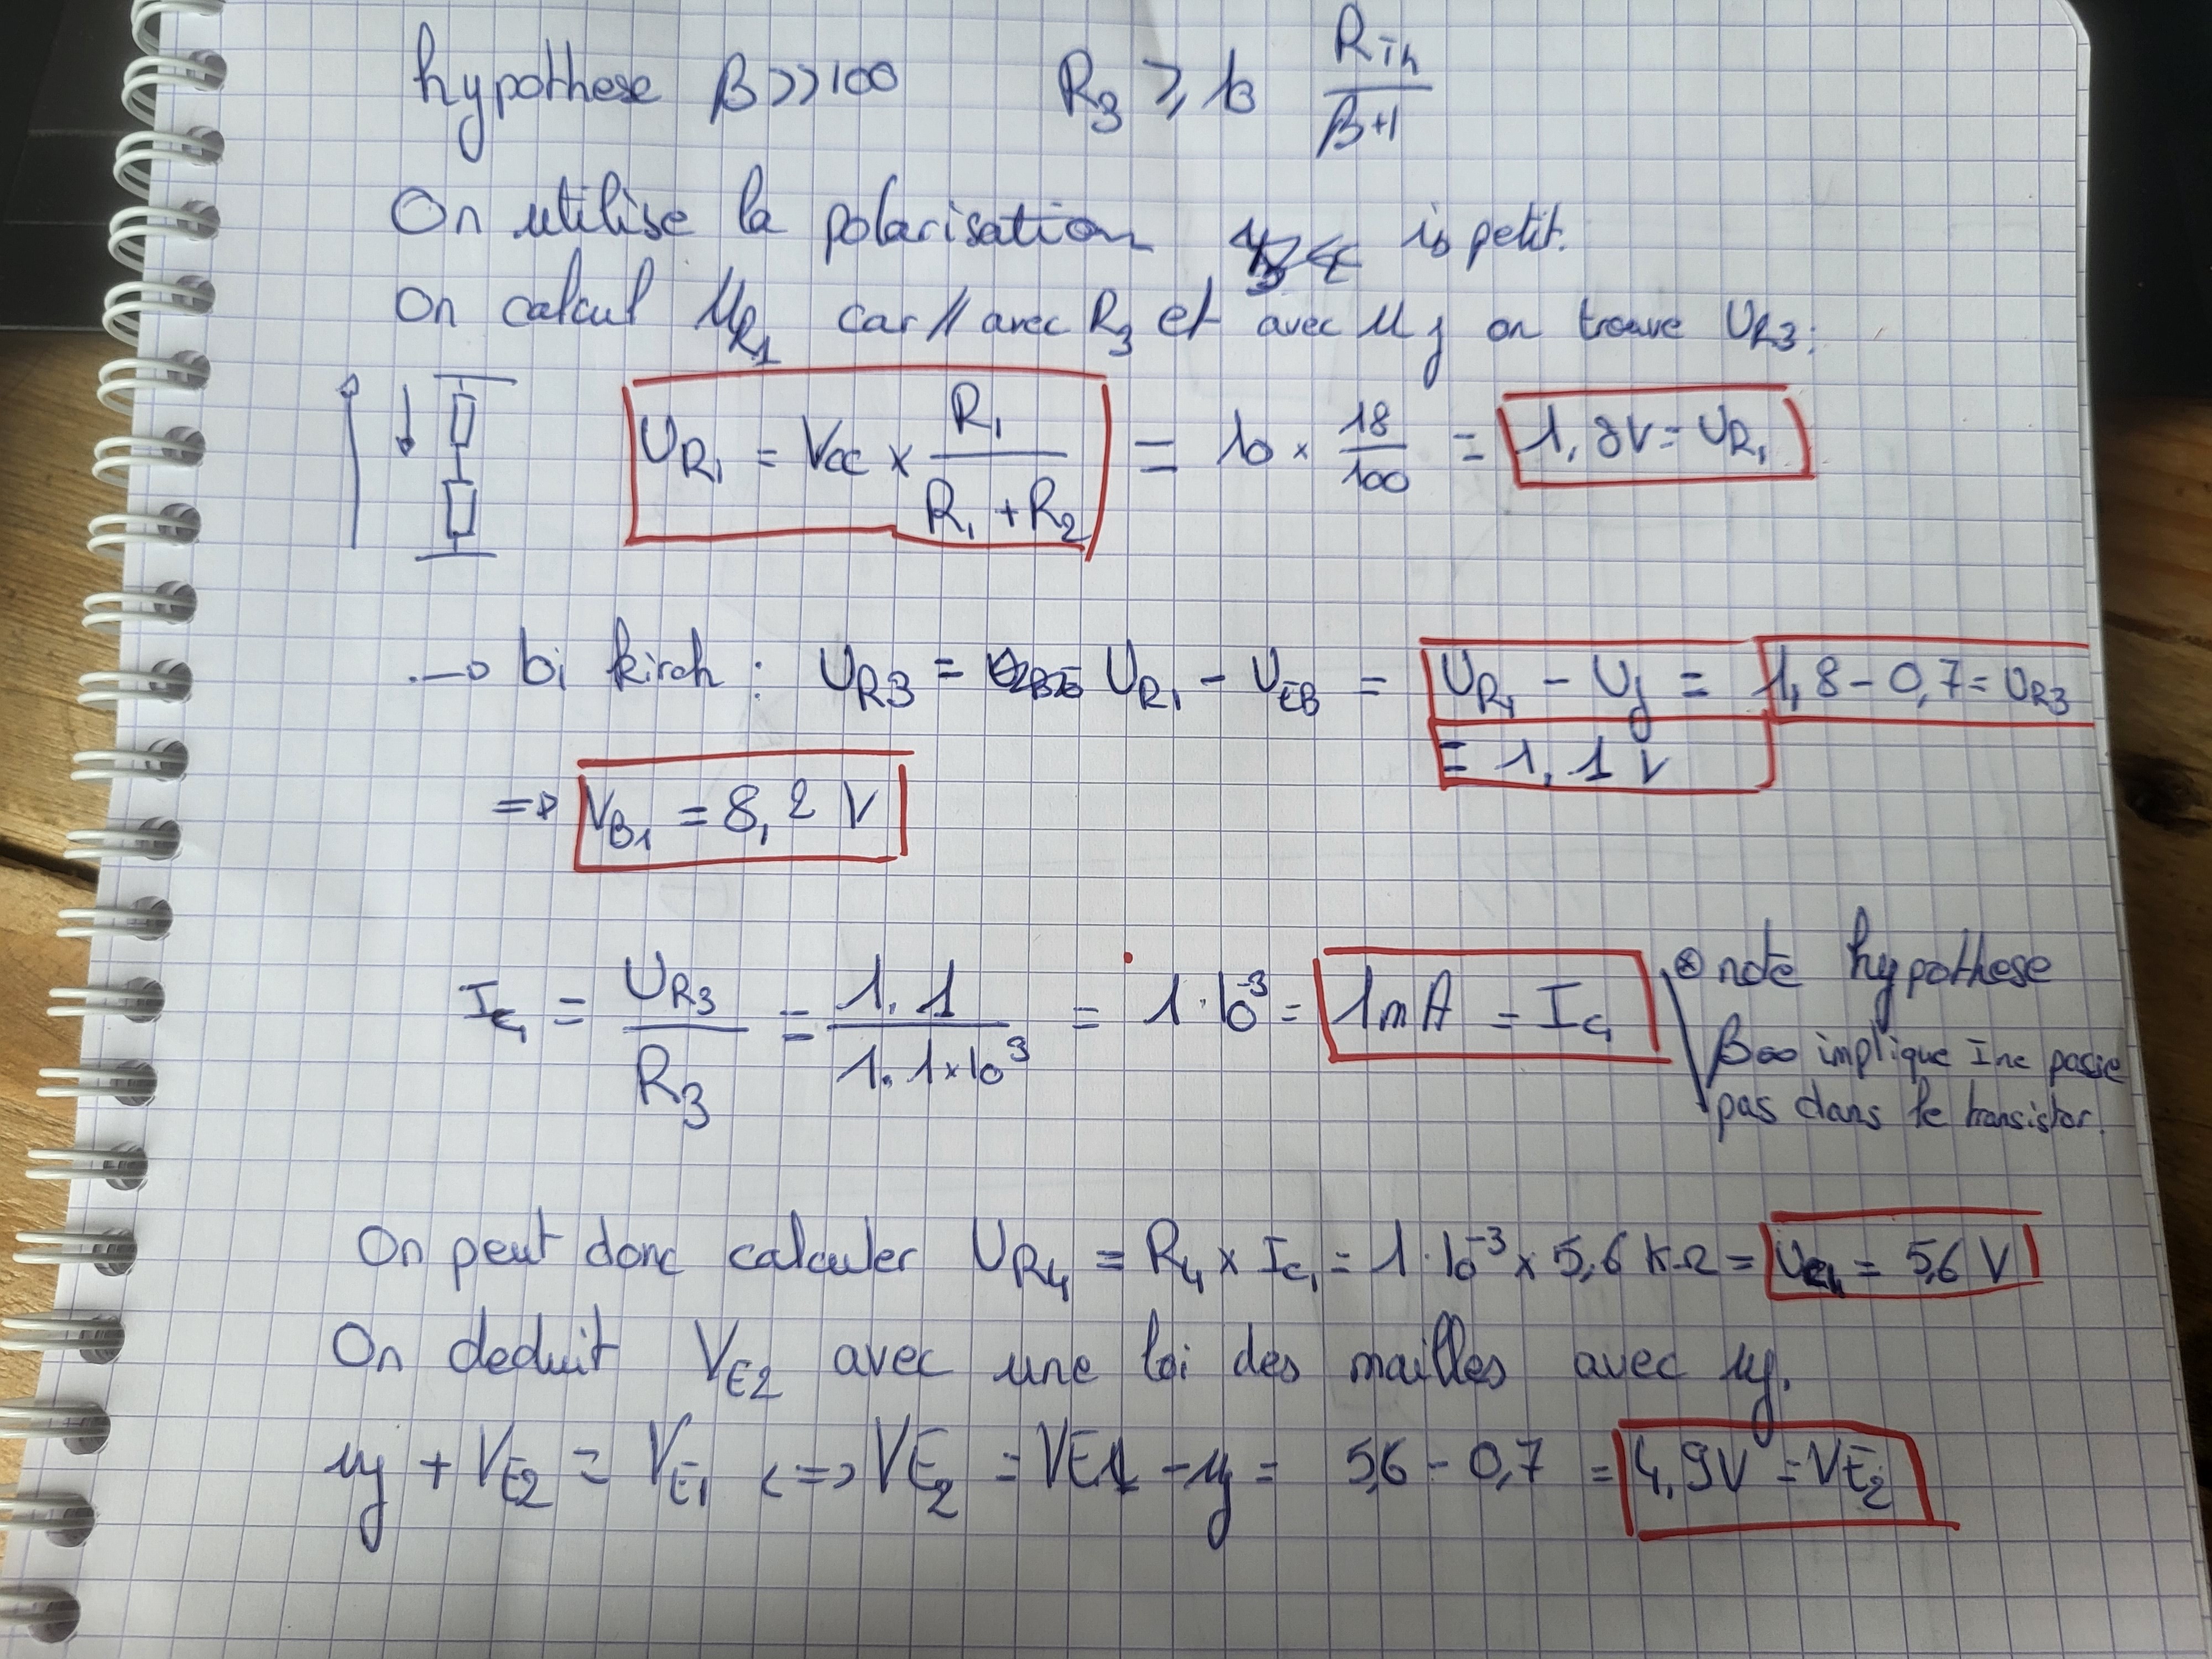 hypothese β>>100 R3 ⩾ 10 RTh/(β+1)
On utilise la polarisation ib petit.
On calcul UR1 car // avec R3 et avec uj on trouve UR3:
UR1 = Vcc × R1/(R1+R2) = 10 × 18/100 = 1,8V = UR1
→ bi kirch : UR3 = UR1 - UEB = UR1 - Uj = 1,8 - 0,7 = UR3
= 1,1 V
=> VB1 = 8,2 V
Ic1 = UR3/R3 = 1.1/(1.1×10^3) = 1·10^-3 = 1mA = Ic1
⊗ note hypothese
β∞ implique I ne passe
pas dans le transistor.
On peut donc calculer UR4 = R4 × Ic1 = 1·10^-3 × 5,6 kΩ = UR4 = 5,6 V
On deduit VE2 avec une loi des mailles avec uj.
uj + VE2 = VE1 <=> VE2 = VE1 - uj = 5,6 - 0,7 = 4,9V = VE2